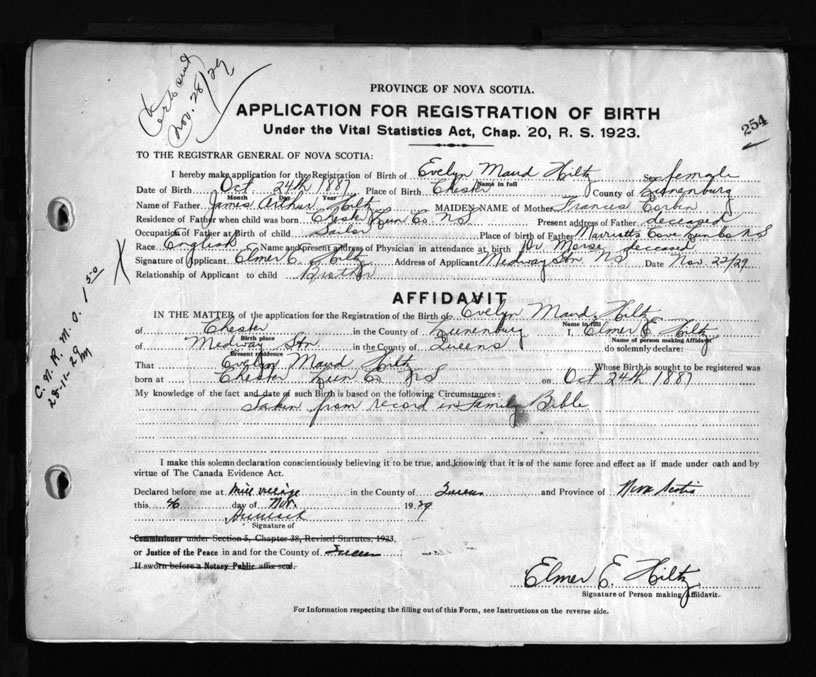 Nov. 28/29
254
PROVINCE OF NOVA SCOTIA.
APPLICATION FOR REGISTRATION OF BIRTH
Under the Vital Statistics Act, Chap. 20, R. S. 1923.
TO THE REGISTRAR GENERAL OF NOVA SCOTIA:
I hereby make application for the Registration of Birth of Evelyn Maud Hiltz Sex female
Name in full
Date of Birth Oct. 24th 1887 Place of Birth Chester County of Lunenburg
Month Day Year
Name of Father James Arthur Hiltz MAIDEN NAME of Mother Frances Corkum
Residence of Father when child was born Chester Lun Co NS Present address of Father deceased
Occupation of Father at Birth of child Sailor Place of birth of Father Marriotts Cove Lun Co NS
Race English Name and present address of Physician in attendance at birth Dr. Morse, deceased
Signature of Applicant Elmer E. Hiltz Address of Applicant Medway Stn NS Date Nov 22/29
Relationship of Applicant to child Brother
C.N.R.M.O. 1 50
28-11-29
AFFIDAVIT
IN THE MATTER of the application for the Registration of the Birth of Evelyn Maud Hiltz
Name in full
of Chester in the County of Lunenburg I, Elmer E. Hiltz
Birth place Name of person making Affidavit
of Medway Stn in the County of Queens do solemnly declare:
Present residence
That Evelyn Maud Hiltz Whose Birth is sought to be registered was
born at Chester Lun Co NS on Oct 24th 1887
My knowledge of the fact and date of such Birth is based on the following Circumstances:
Taken from record in Family Bible
I make this solemn declaration conscientiously believing it to be true, and knowing that it is of the same force and effect as if made under oath and by
virtue of The Canada Evidence Act.
Declared before me at Mill Village in the County of Queens and Province of Nova Scotia
this 26 day of Nov. 1929
Signature of
Commissioner under Section 5, Chapter 38, Revised Statutes, 1923,
or Justice of the Peace in and for the County of Queens
If sworn before a Notary Public affix seal.
Elmer E. Hiltz
Signature of Person making Affidavit.
For Information respecting the filling out of this Form, see Instructions on the reverse side.